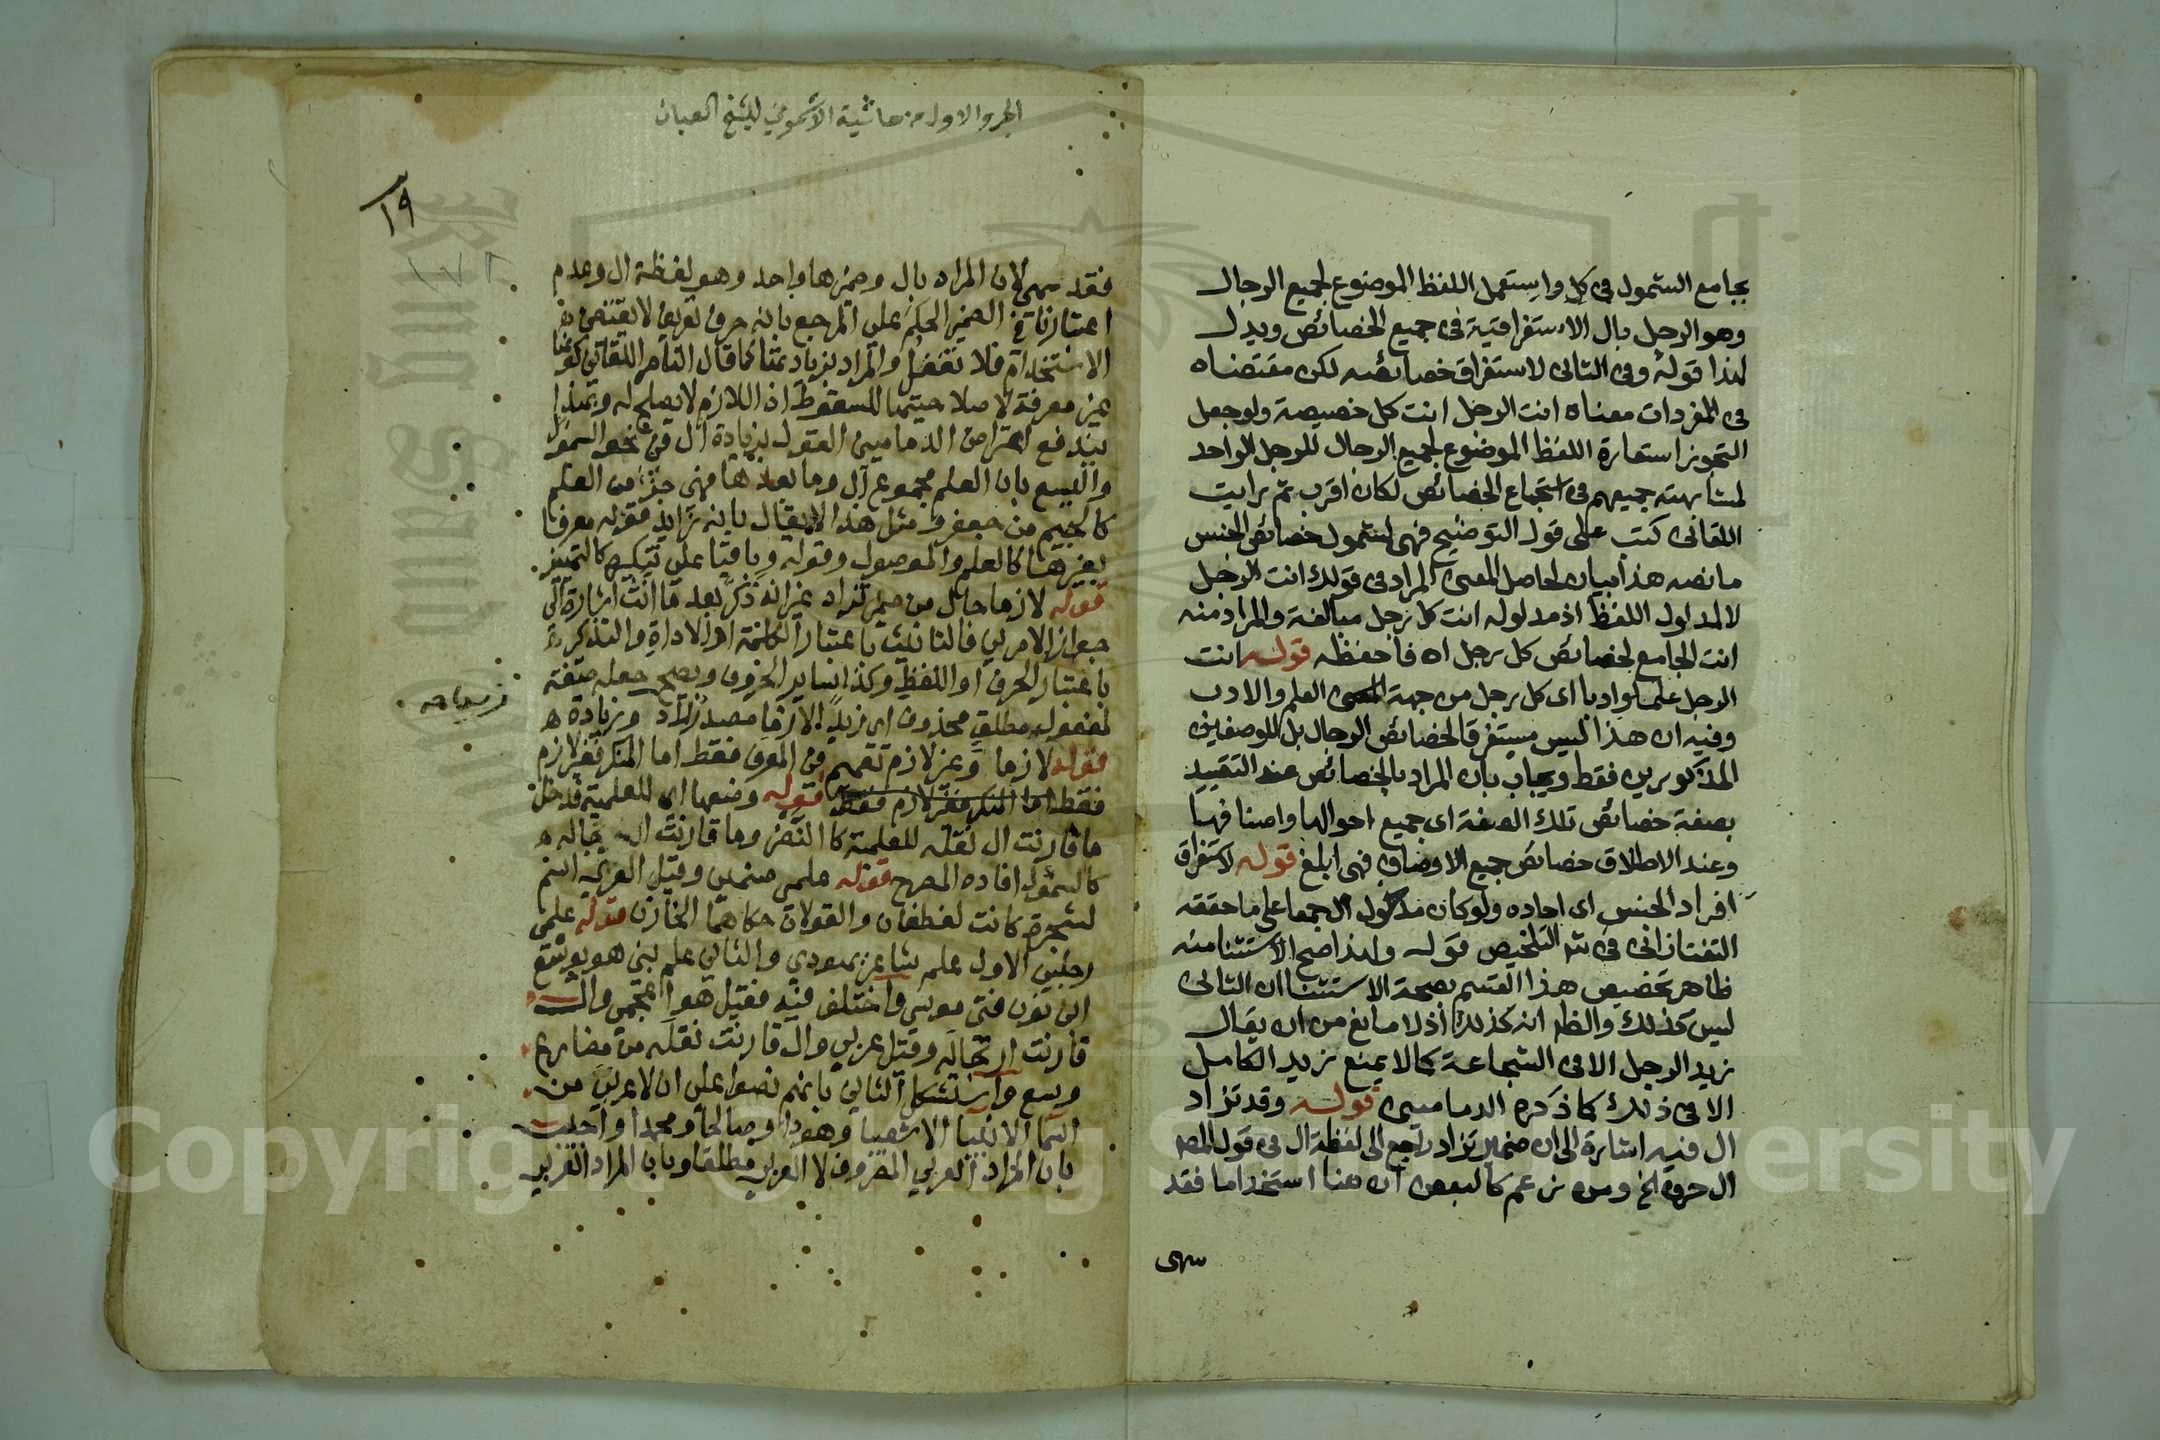 بجامع الشمول في كل واستعمل اللفظ الموضوع لجميع الرجال
وهو الرجل بال الاستغراقية في جميع الخصائص ويدل
لهذا قوله وفي الثاني لاستغراق خصائصه لكن مقتضاه
في المفردات معناه انت الرجل انت كل خصيصة ولو جعل
التجوز استعارة اللفظ الموضوع لجميع الرجال للرجل الواحد
لمشابهته جميعهم في استجماع الخصائص لكان اقرب ثم رايت
اللقاني كتب على قول التوضيح فهي لشمول خصائص الجنس
ما نصه هذا بيان لحاصل المعنى المراد في قولك انت الرجل
لا لمدلول اللفظ اذ مدلوله انت كل رجل مبالغة والمراد منه
انت الجامع لخصائص كل رجل اه فاحفظه قوله انت
الرجل علما وادبا اي كل رجل من جهة العلم والادب
وفيه ان هذا ليس مستغرقا لخصائص الرجال بل للوصفين
المذكورين فقط ويجاب بان المراد بالخصائص عند التقييد
بصفة خصائص تلك الصفة اي جميع احوالها واصنافها
وعند الاطلاق خصائص جميع الاوصاف فهي ابلغ قوله لاستغراق
افراد الجنس اي احاده ولو كان مدخول ال جمعا على ما حققه
التفتازاني في شر التلخيص قوله ولهذا صح الاستثنا منه
ظاهر تخصيص هذا القسم بصحة الاستثنا ان الثاني
ليس كذلك والظ انه كذلك اذ لا مانع من ان يقال
زيد الرجل الا في الشجاعة كما لا يمنع زيد الكامل
الا في ذلك كما ذكره الدماميني قوله وقد تزاد
ال فيه اشارة الى ان ضمير تزاد راجع الى لفظة ال في قول المص
ال حرف الخ ومن زعم كالبعض ان هنا استخداما فقد
سهى
الجزو الاول من حاشية الاشموني للشيخ الصبان
١٩
فقد سهى لان المراد بال وضميرها واحد وهو لفظة ال وعدم
اعتبارنا في الضمير الحكم على المرجع بانه حرف تعريف لا يقتضي
الاستخدام فلا تغفل والمراد بزيادتها كما قال الناصر اللقاني كونها
غير معرفة لا صلاحيتها للسقوط اذ اللازم لا يصلح له وبهذا
يندفع اعتراض الدماميني القول بزيادة ال في نحو السمؤل
واليسع بان العلم مجموع ال وما بعدها فهي جزء من العلم
كالجيم من جعفر ومثل هذا لا يقال بانه زايد فقوله معرفا
بغيرها كالعلم والموصول وقوله وباقيا على تنكيره كالتمييز
قوله لازما حال من ضمير تزاد غير انه ذكر بعد ما انث اشارة الى
جواز الامرين فالتانيث باعتبار الكلمة او الاداة والتذكير
باعتبار الحرف او اللفظ وكذا ساير الحروف ويصح جعله صفة
لمفعول مطلق محذوف اي زيدا لازما مصدر زاد وزيادة
قوله لازما وغير لازم تقسيم في المعرف فقط اما المنكر فغير لازم
فقط اما المنكر فغير لازم فقط قوله وضعها اي للعلمية فدخل
ما قارنت ال نقله للعلمية كالنضر وما قارنت ارتجاله
كالسمؤل افاده المصرح قوله علمى صنمين وقيل العزى اسم
لشجرة كانت لغطفان والقولان حكاهما الخازن قوله علمى
رجلين الاول علم شاعر يهودي والثاني علم نبي هو يوشع
ابن نون فتى موسى واختلف فيه فقيل هو اعجمي وال
قارنت ارتجاله وقيل عربي وال قارنت نقله من مضارع
وسع واستشكل الثاني بانهم نصوا على ان لا عربي من
اسما الانبيا الا شعيبا وهودا وصالحا ومحمدا واجيب
بان المراد العربي المصروف لا العربي مطلقا وبان المراد العربي